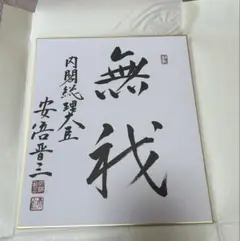 無我
内閣総理大臣
安倍晋三